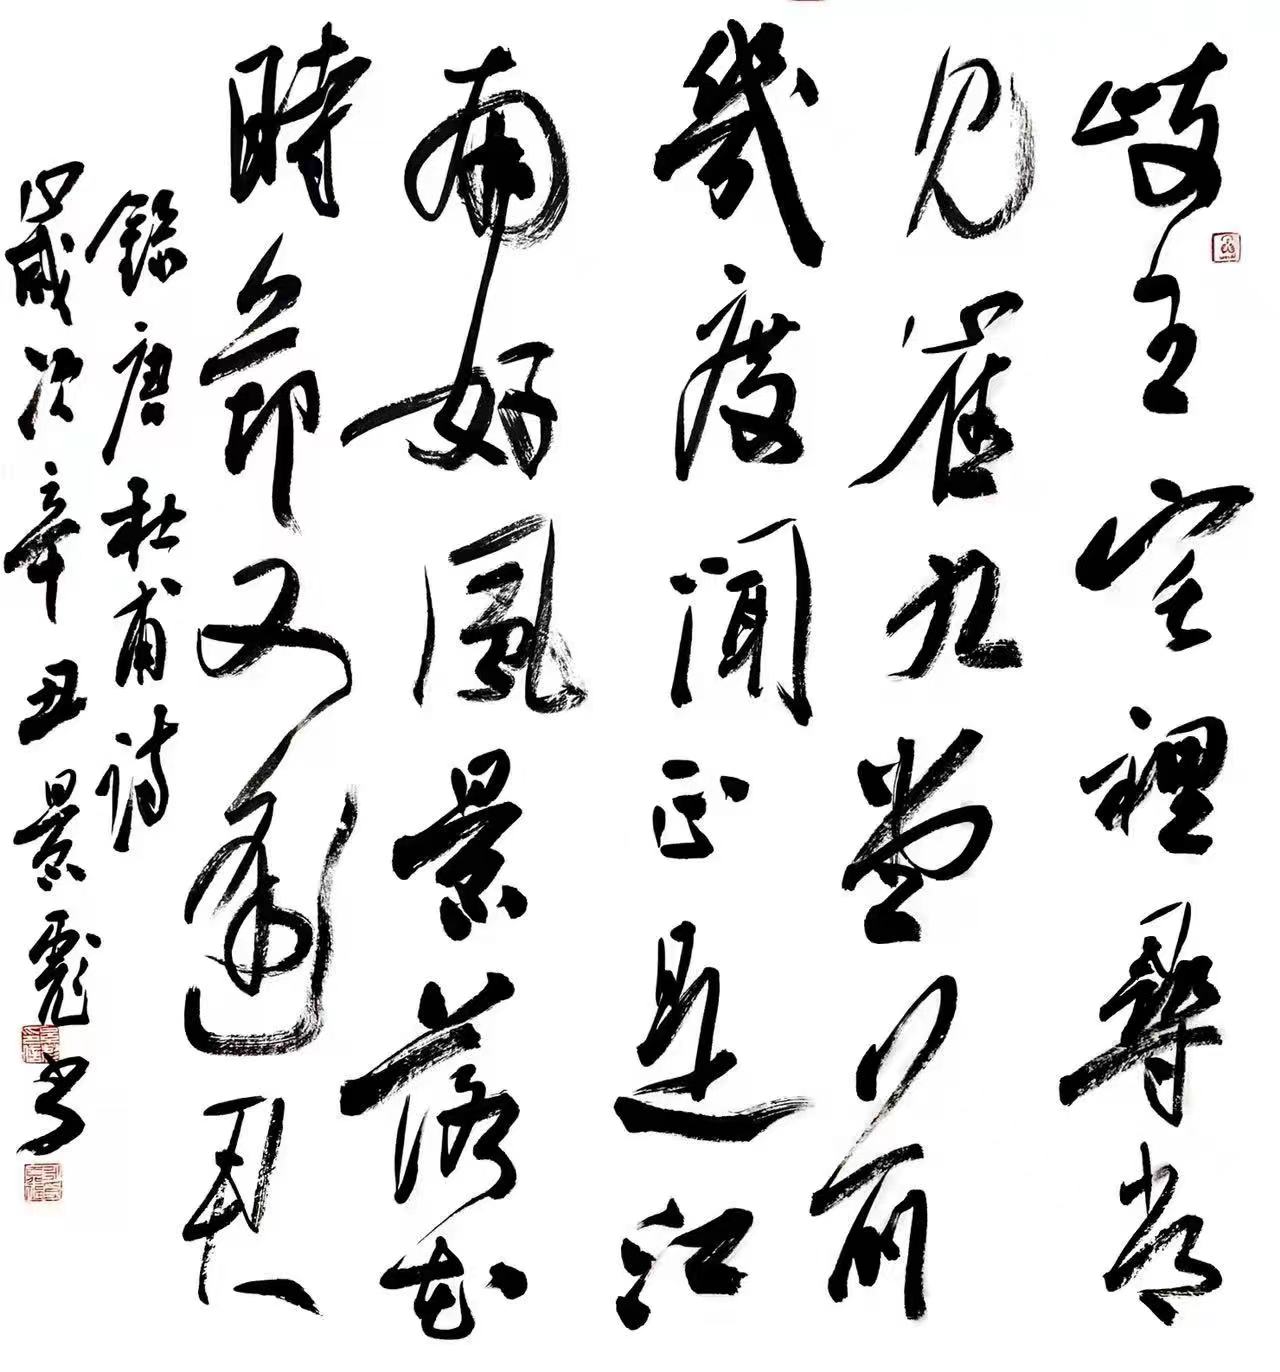 岐王宅裡尋常
見崔九堂前
幾度聞正是江
南好風景落花
時節又逢君
錄唐杜甫詩
歲次辛丑景彪書